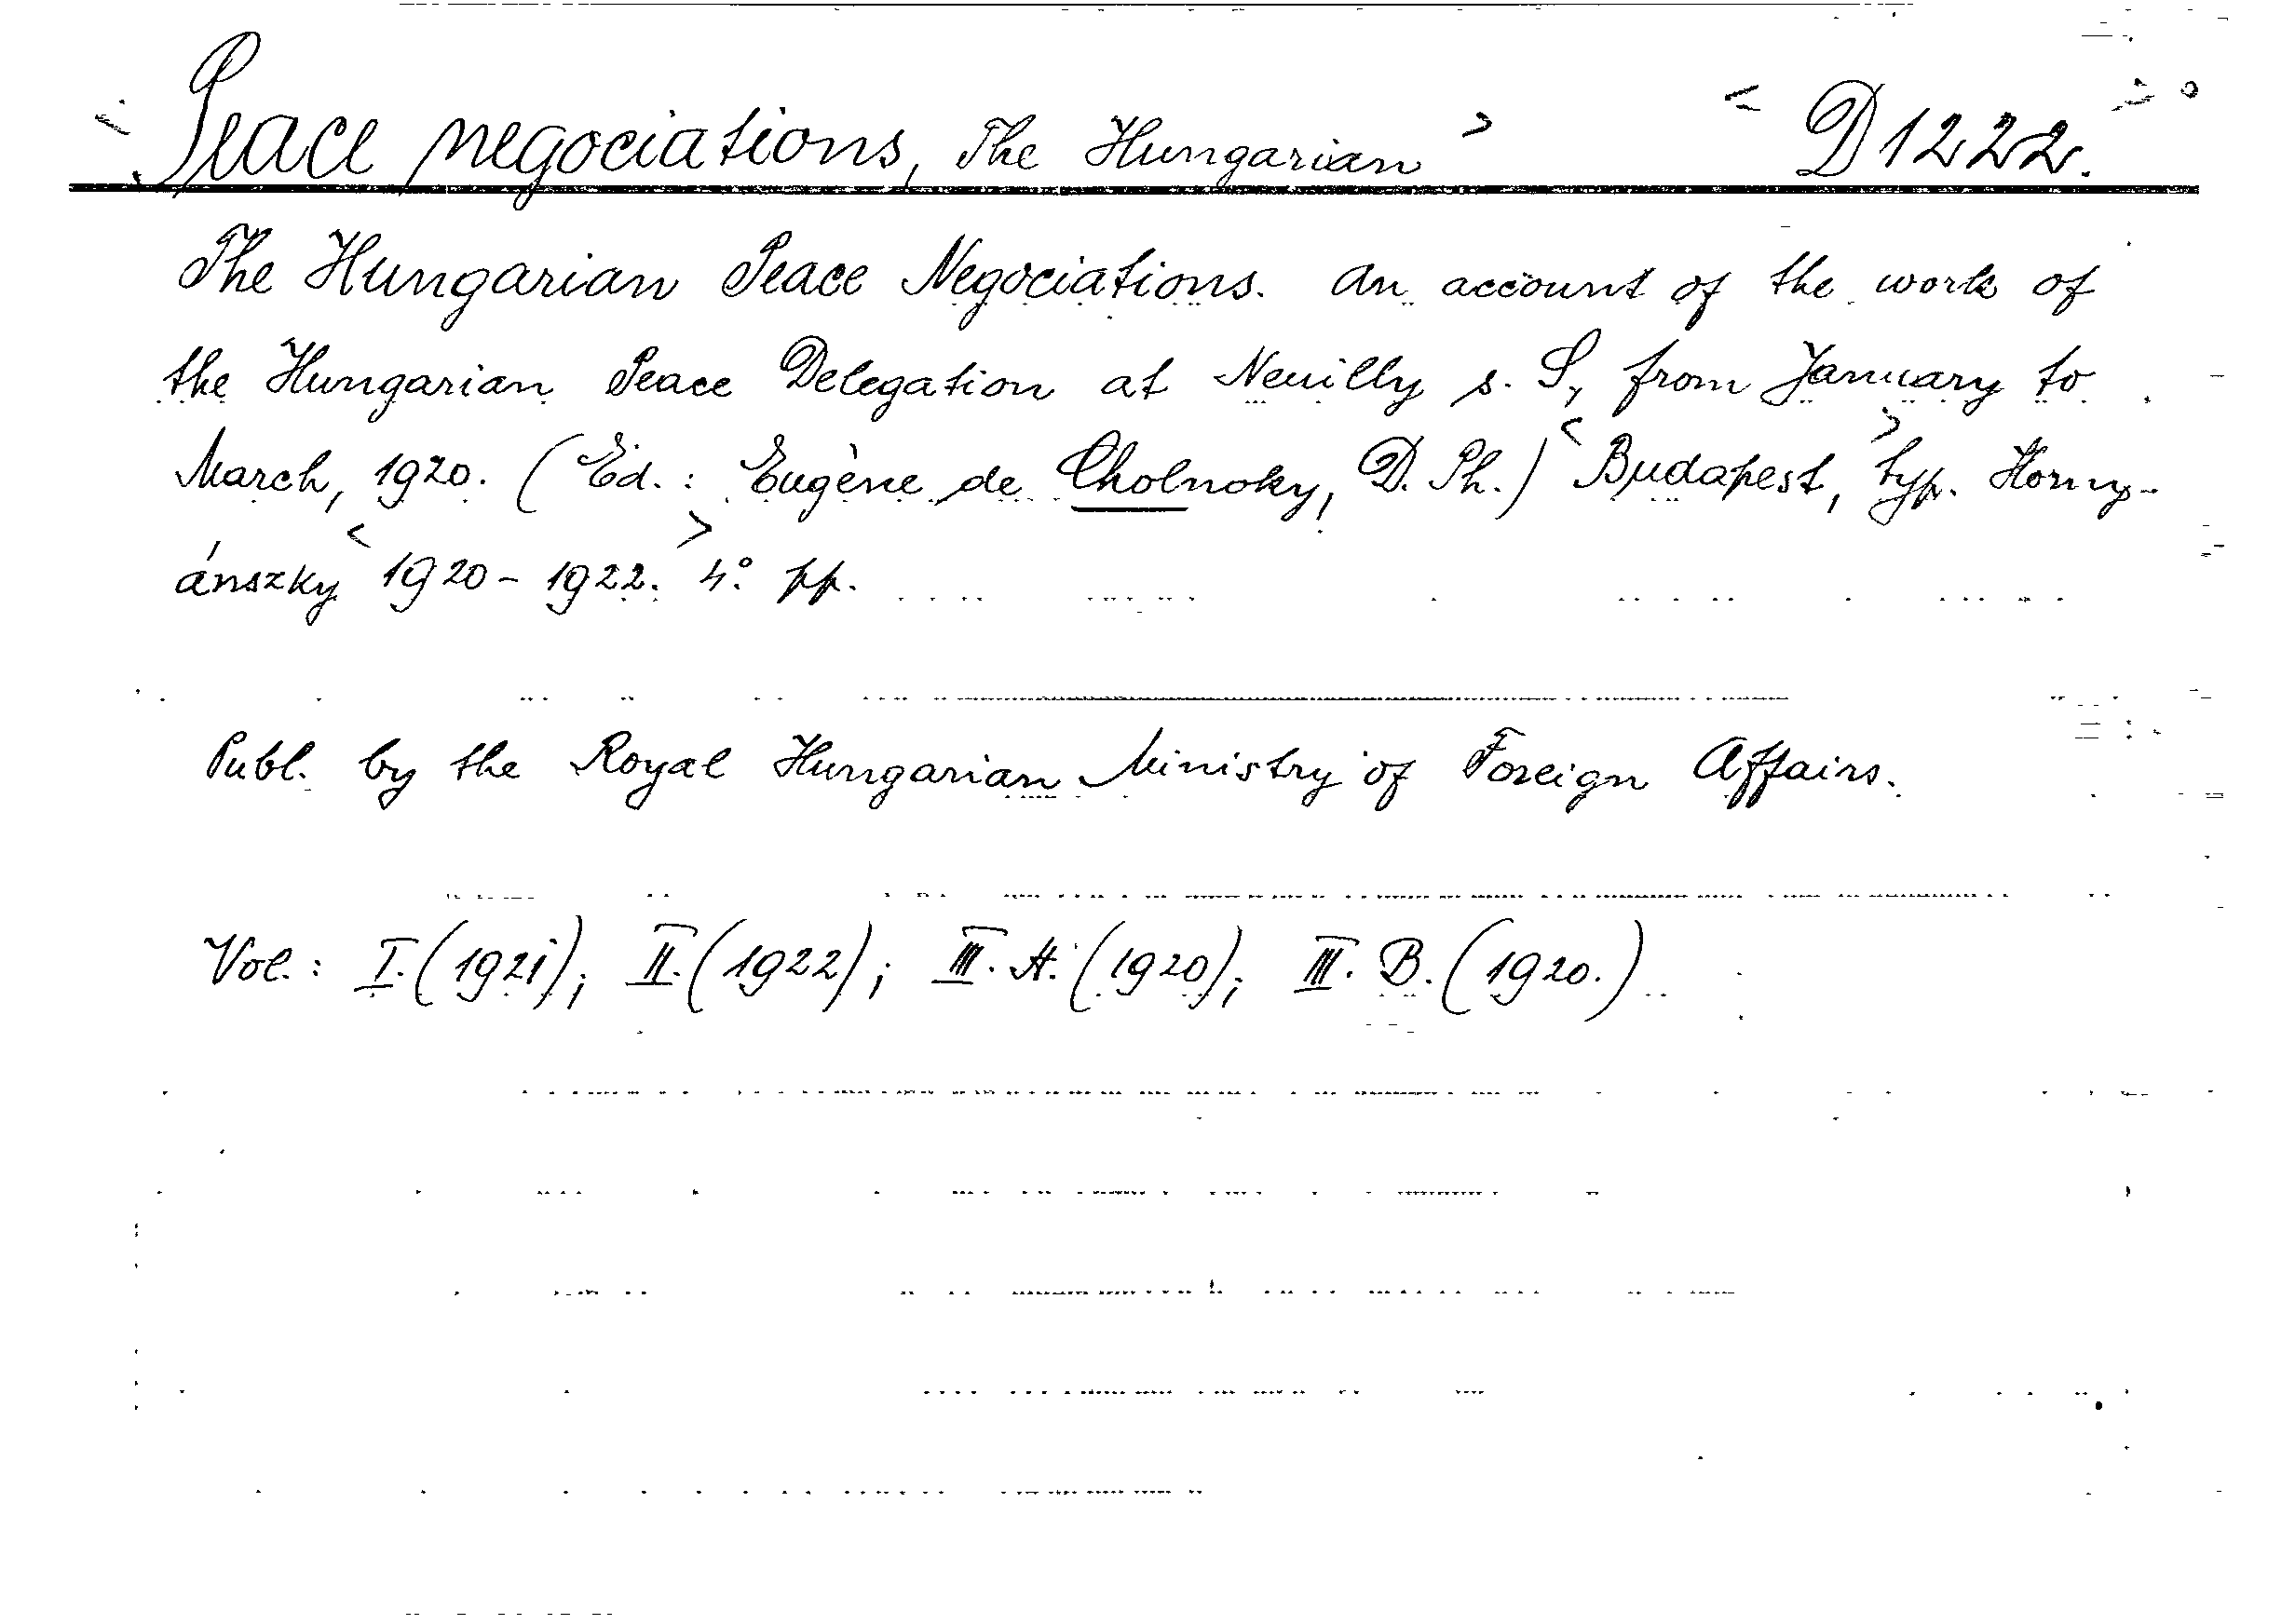 < Peace negociations, The Hungarian > < D1222. >
The Hungarian Peace Negociations. An account of the work of
the Hungarian Peace Delegation at Neuilly s. S, from January to
March, 1920. (Ed.: Eugène de Cholnoky, D. Ph.) < Budapest, > typ. Horny-
ánszky < 1920-1922. > 4° pp.
Publ. by the Royal Hungarian Ministry of Foreign Affairs.
Vol.: I. (1921); II. (1922); III. A. (1920); III. B. (1920.)